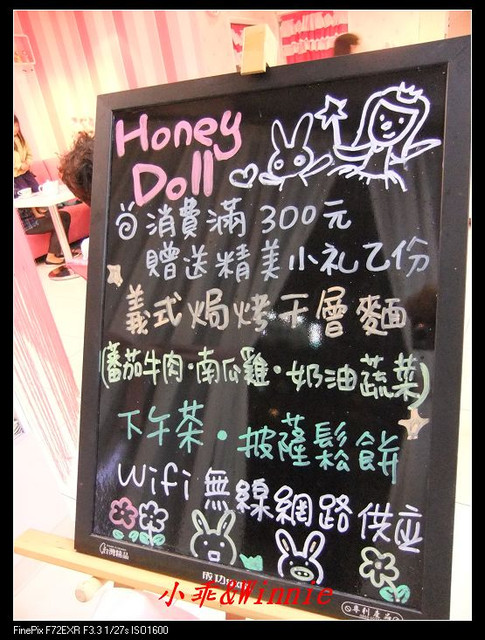 Honey
Doll
消費滿 300元
贈送精美小礼乙份
義式焗烤千層麵
(蕃茄牛肉·南瓜雞·奶油蔬菜)
下午茶·披薩鬆餅
Wifi 無線網路供应
台灣精品
成功
專利產品
小乖&Winnie
FinePix F72EXR F3.3 1/27s ISO1600